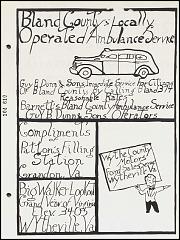 Bland County's Locally
Operated Ambulance Service
Guy B. Dunn & Sons, Immediate Service for Citizens
Of Bland County By Calling Bland 3
Reasonable Rates
Barnett's Bland County Ambulance Service
Guy B. Dunn & Sons, Operators
Compliments
of
Patton's Filling
Station
Grandon, Va.
Big Walker Lookout
Grand View of Virginia
Elev. 3405
Wytheville, Va.
Wythe County
Motors
Ford Sales
Wytheville, Va